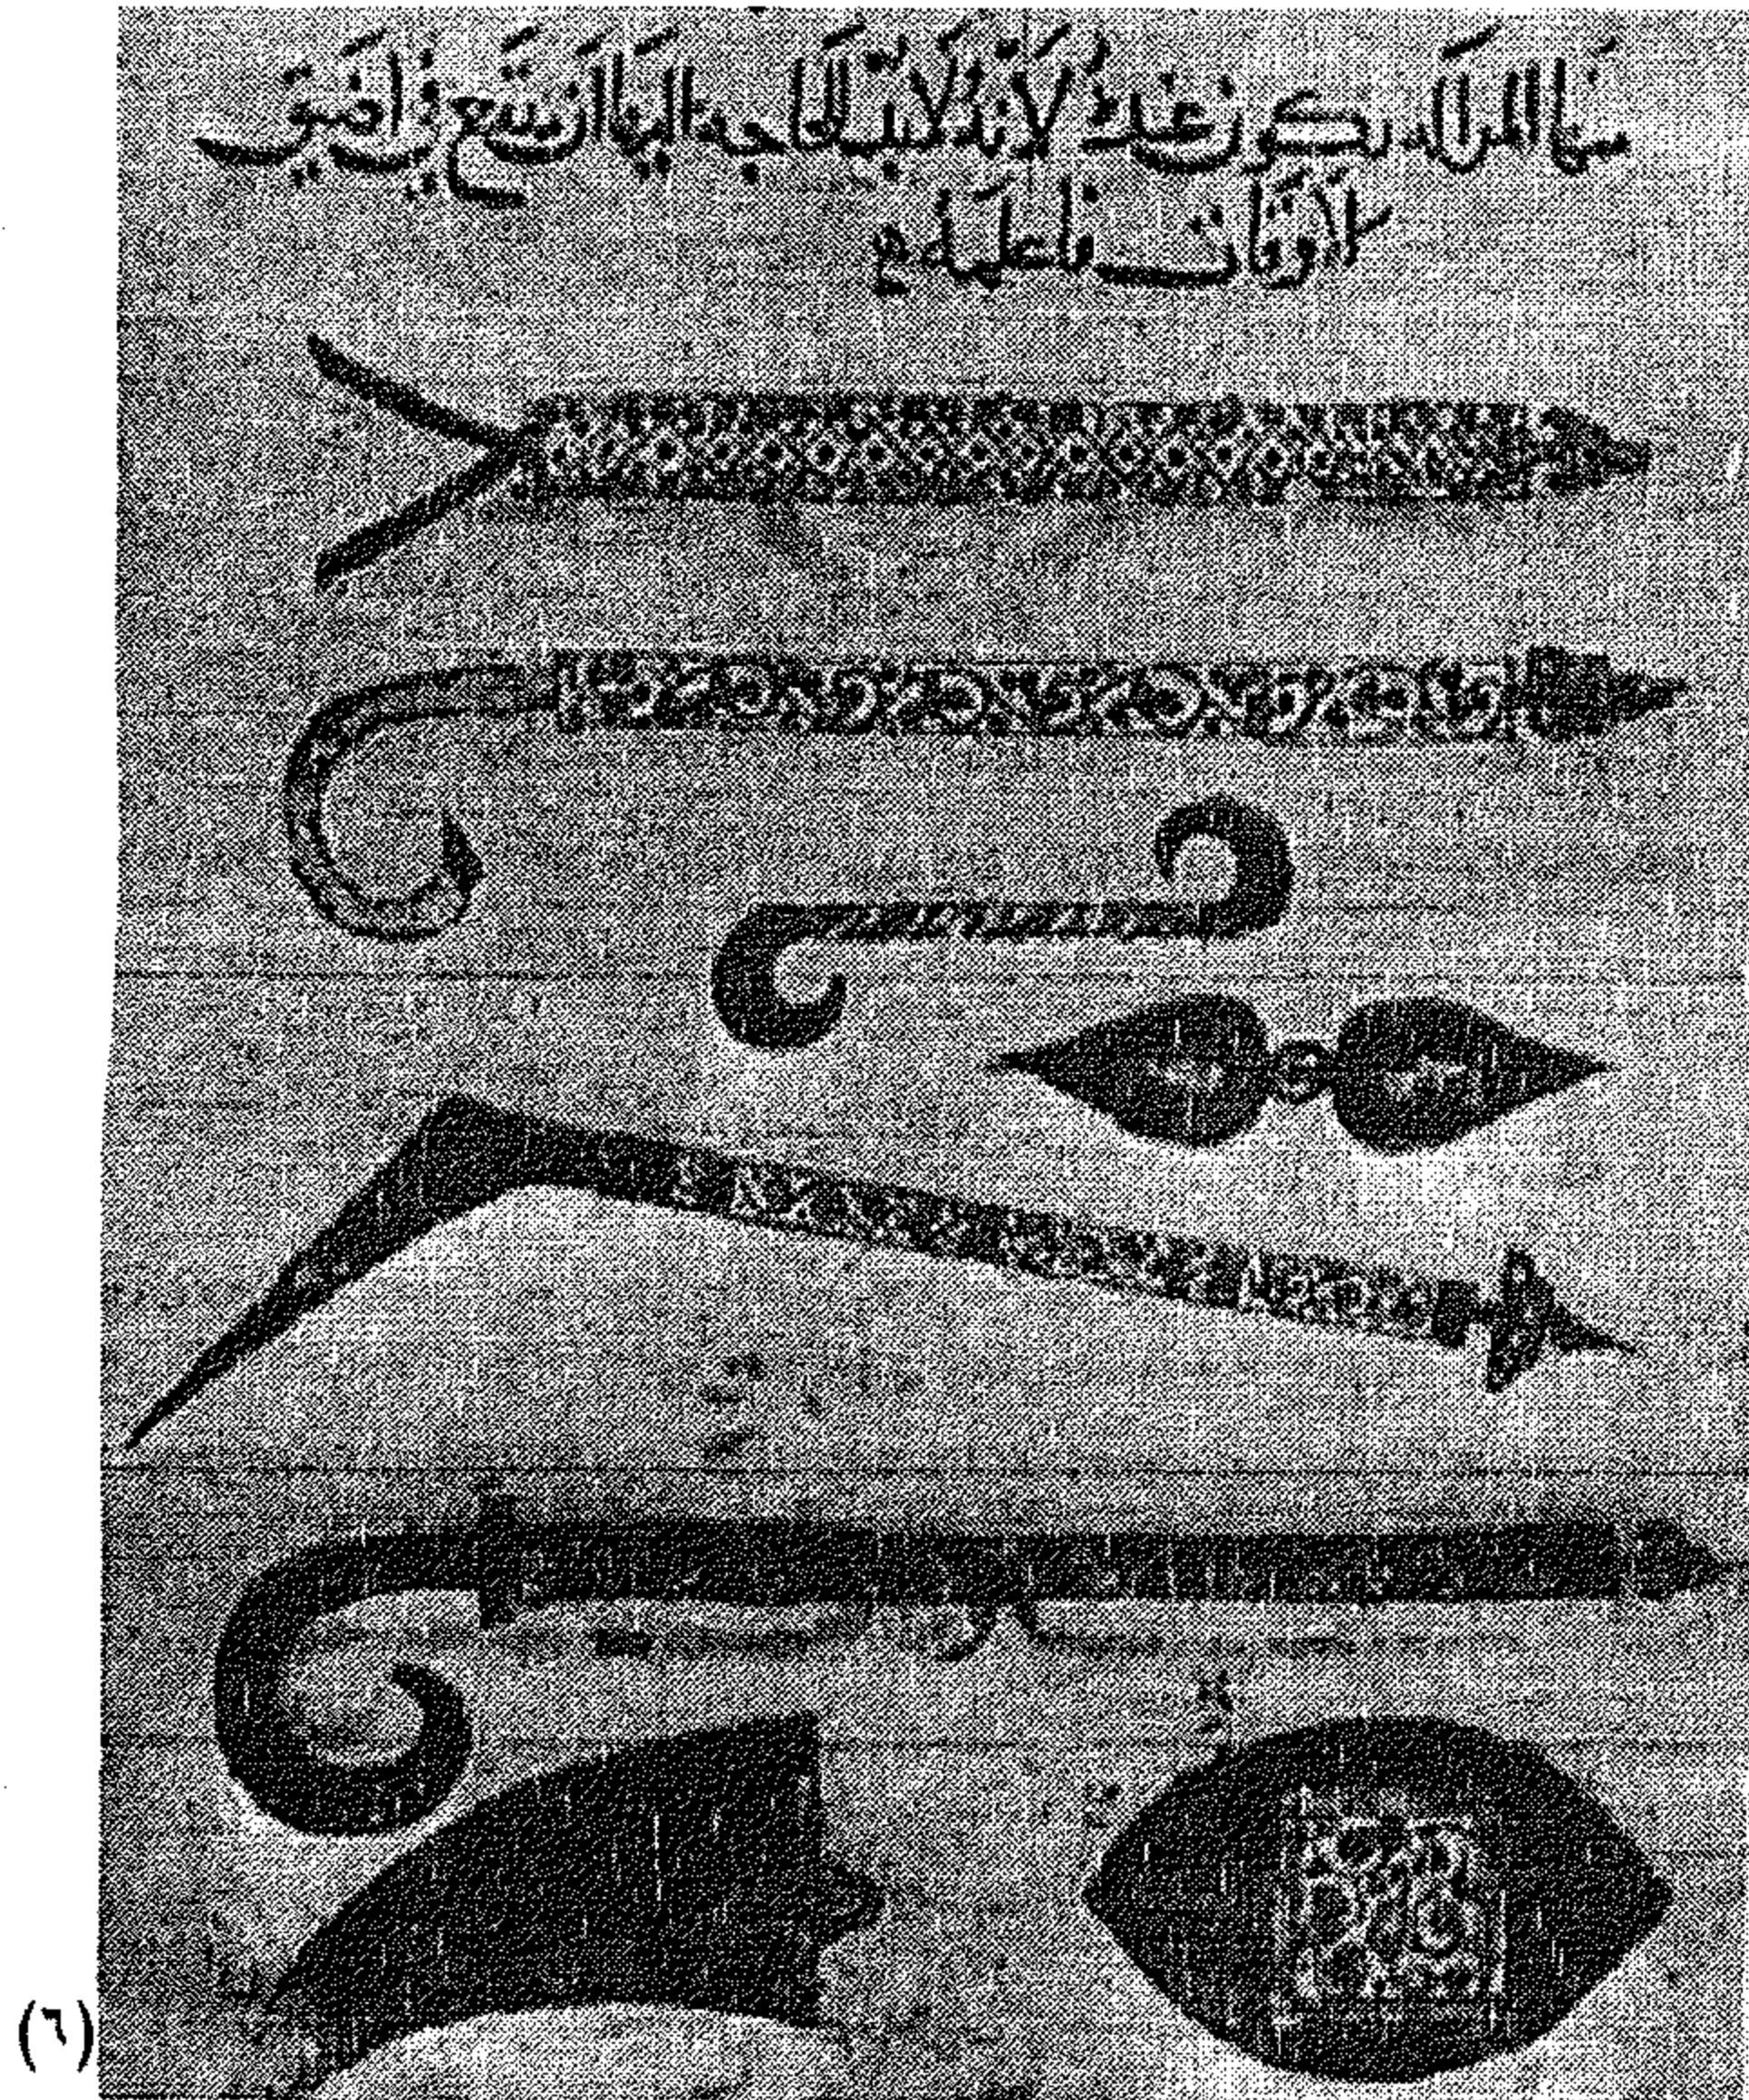 منها المرلاد يكون عنده لانه لابد الحاجه اليها ان تقع في اضيق
الاوقات فاعلمه
(٦)